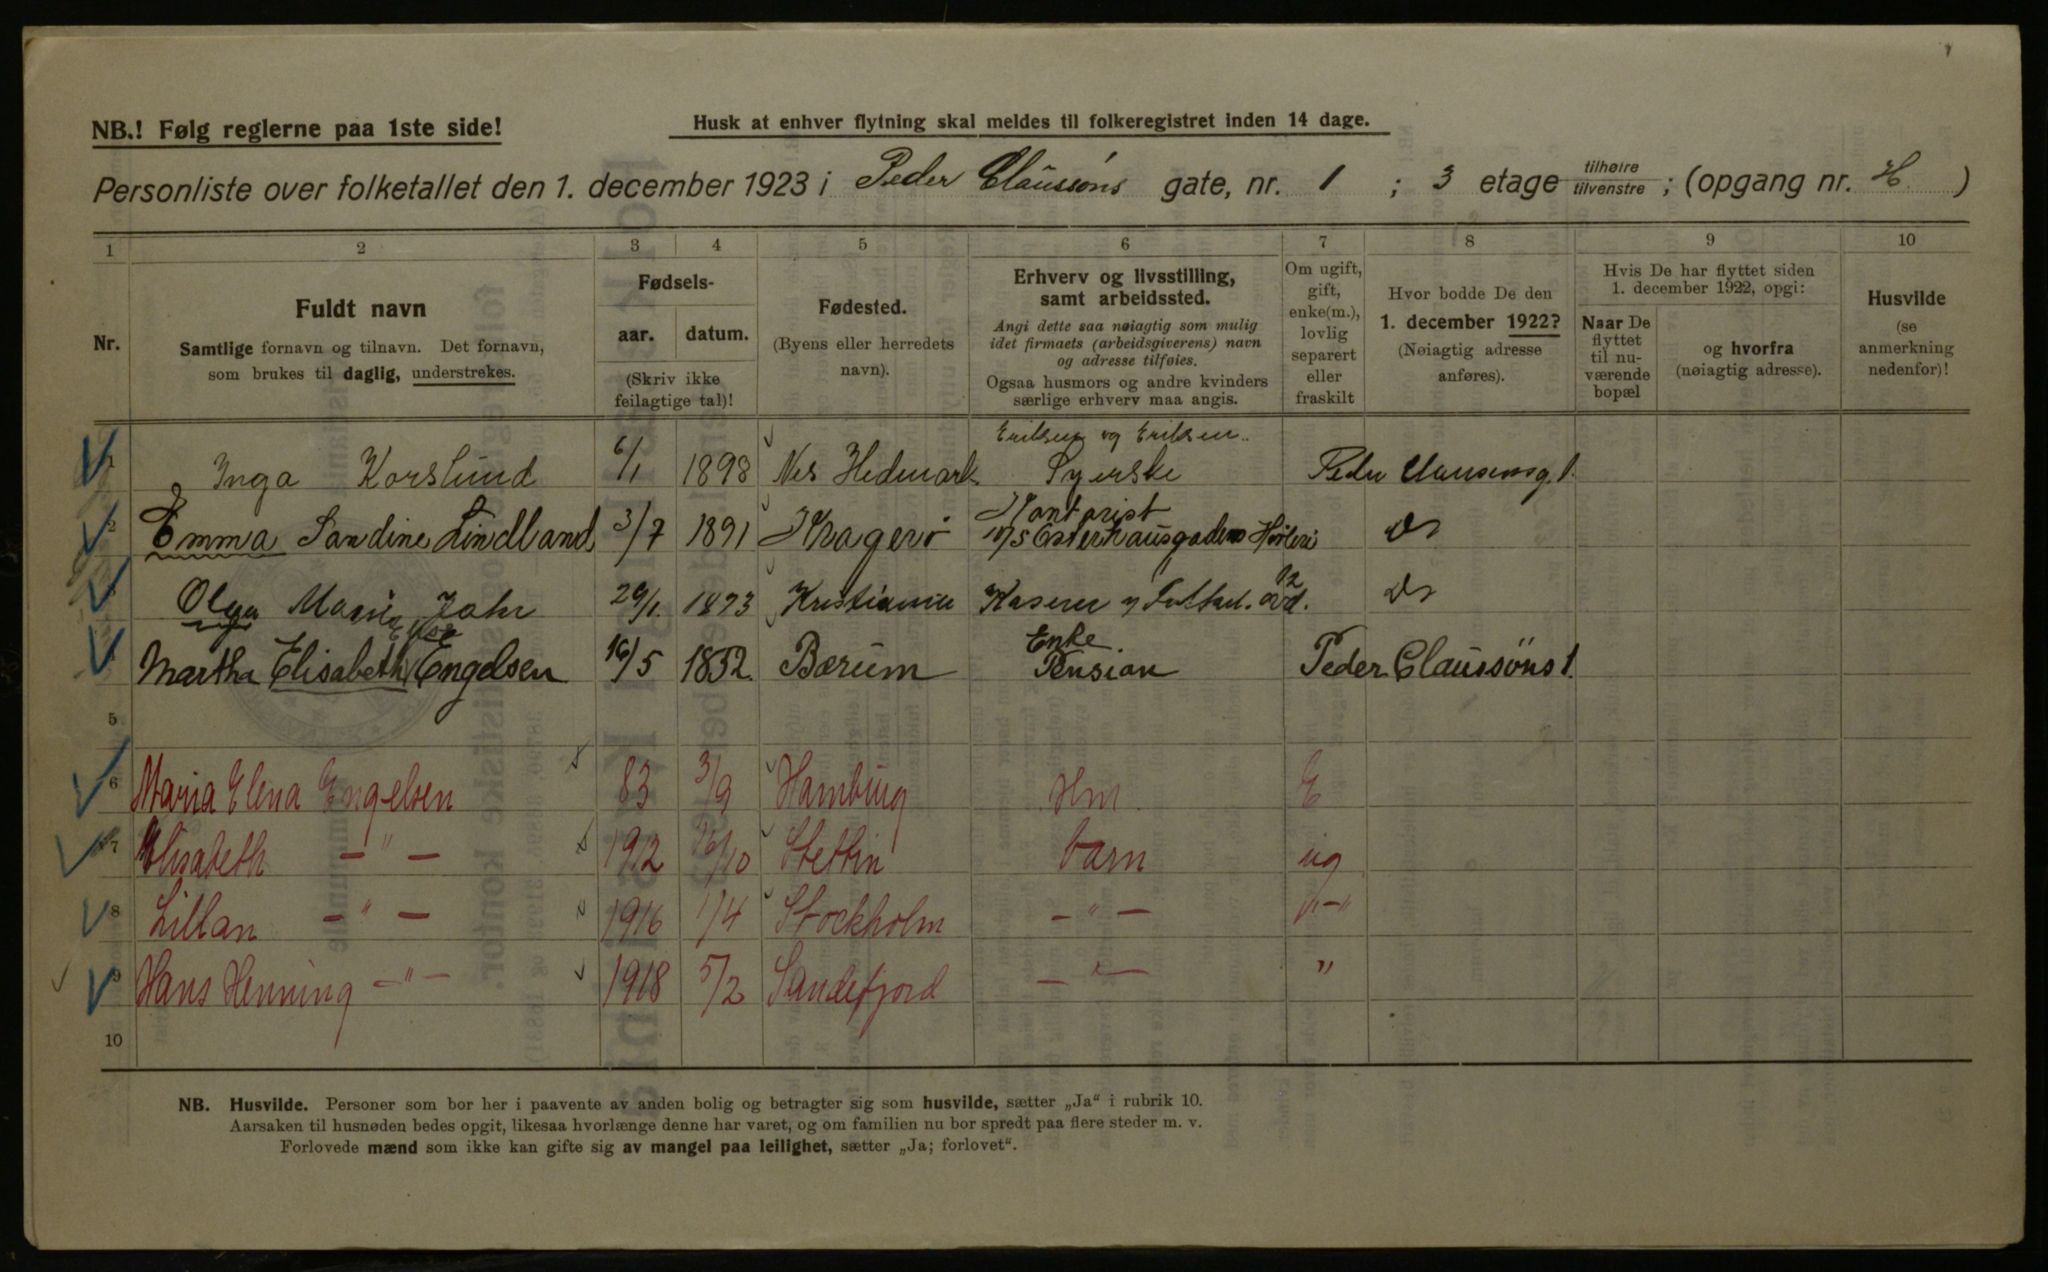 NB.! Følg reglerne paa 1ste side!
Husk at enhver flytning skal meldes til folkeregistret inden 14 dage.
Personliste over folketallet den 1. december 1923 i Peder Claussøns gate, nr. 1 ; 3 etage tilhøire tilvenstre ; (opgang nr. H. )
1 2 3 4 5 6 7 8 9 10
Nr.
Fuldt navn
Samtlige fornavn og tilnavn. Det fornavn,
som brukes til daglig, understrekes.
Fødsels-
aar. datum.
(Skriv ikke
feilagtige tal)!
Fødested.
(Byens eller herredets
navn).
Erhverv og livsstilling,
samt arbeidssted.
Angi dette saa nøiagtig som mulig
idet firmaets (arbeidsgiverens) navn
og adresse tilføies.
Ogsaa husmors og andre kvinders
særlige erhverv maa angis.
Om ugift,
gift,
enke(m.),
lovlig
separert
eller
fraskilt
Hvor bodde De den
1. december 1922?
(Nøiagtig adresse
anføres).
Hvis De har flyttet siden
1. december 1922, opgi:
Naar De
flyttet
til nu-
værende
bopæl
og hvorfra
(nøiagtig adresse).
Husvilde
(se
anmerkning
nedenfor)!
Eriksen og Eriksen
1 Inga Korslund 6/1 1898 Nes Hedmark Syerske Peder Clausensg. 1.
2 Emma Sandine Lindland 3/7 1891 Kragerö Kontorist Do
3 Olga Marie Jahr 29/1. 1873 Kristiania 12 Do
4 Martha Elisabeth Engelsen 16/5 1852. Bærum Enke Pension Peder Claussøns 1.
5
6 Maria Elena Engelsen 83 3/9 Hamburg Hm E
7 Elisabeth — " — 1912 26/10 Stettin barn ug
8 Lillan — " — 1916 1/4 Stockholm — " — " — "
9 Hans Henning — " — 1918 5/2 Sandefjord — " — "
10
NB. Husvilde. Personer som bor her i paavente av anden bolig og betragter sig som husvilde, sætter „Ja“ i rubrik 10.
Aarsaken til husnøden bedes opgit, likesaa hvorlænge denne har varet, og om familien nu bor spredt paa flere steder m. v.
Forlovede mænd som ikke kan gifte sig av mangel paa leilighet, sætter „Ja; forlovet“.